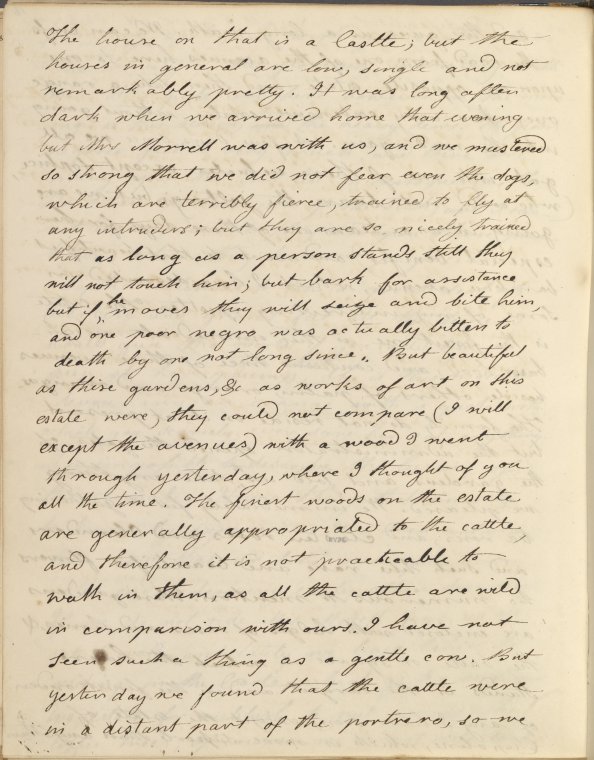 The house on that is a Castle; but the
houses in general are low, single and not
remarkably pretty. It was long after
dark when we arrived home that evening
but Mrs Morrell was with us, and we mustered
so strong that we did not fear even the dogs,
which are terribly fierce, trained to fly at
any intruders; but they are so nicely trained
that as long as a person stands still they
will not touch him; but bark for assistance
but if he moves they will seize and bite him,
and one poor negro was actually bitten to
death by one not long since. But beautiful
as these gardens, &c as works of art on this
estate were, they could not compare (I will
except the avenues) with a wood I went
through yesterday, where I thought of you
all the time. The finest woods on the estate
are generally appropriated to the cattle,
and therefore it is not practicable to
walk in them, as all the cattle are wild
in comparison with ours. I have not
seen such a thing as a gentle cow. But
yesterday we found that the cattle were
in a distant part of the portrero, so we